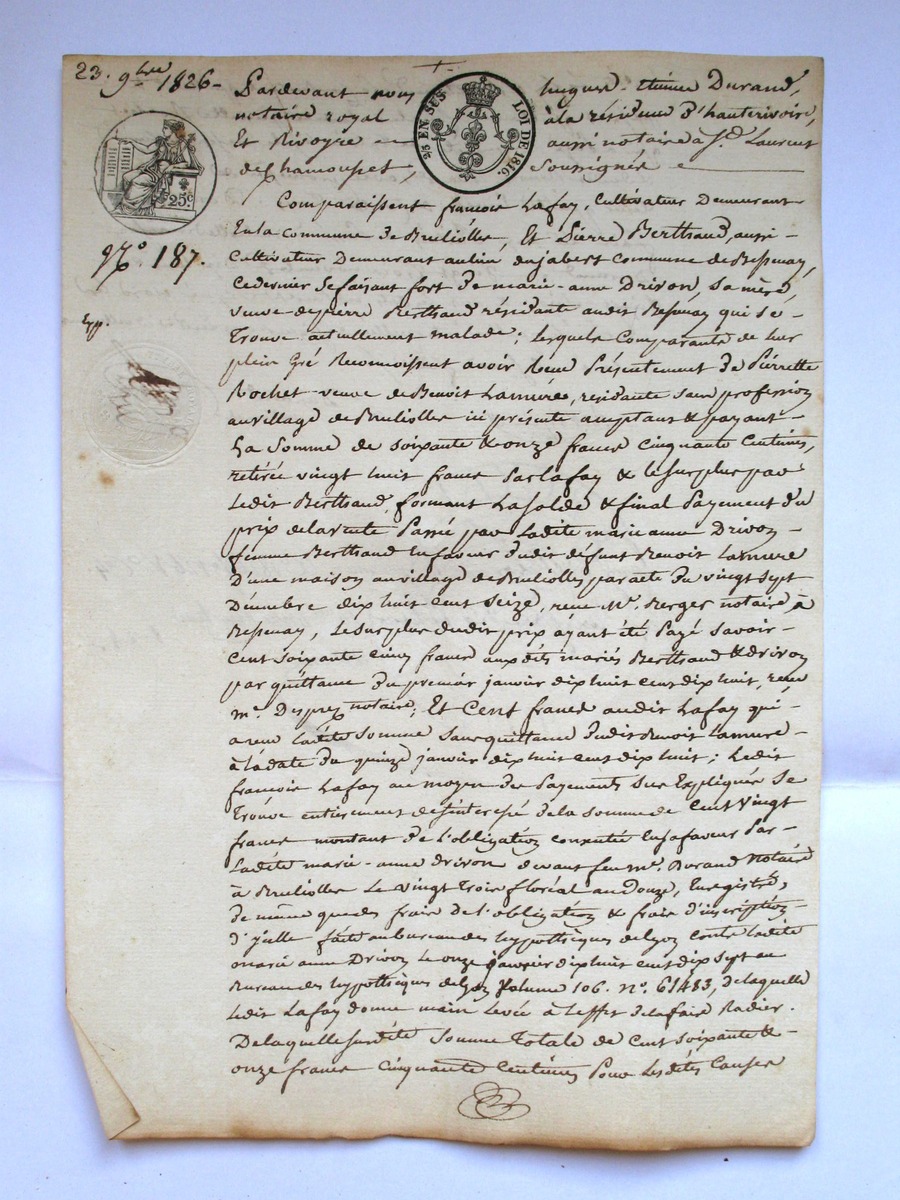 23. 9bre 1826-
Pardevant nous hugues-étienne Durand,
notaire royal à la résidence d'hauterivoire,
Et Rivoyre aussi notaire à St. Laurent
de Chamousset, soussignés
2/5 EN SUS LOI DE 1816.
25c
No. 187.
Exp.
Comparaissent françois Lafay, Cultivateur Demeurant
En la commune de Brulliolle, Et Pierre Berthaud, aussi
Cultivateur Demeurant au lieu dujabert Commune de Bessenay,
ce dernier se faisant fort de marie-anne Drivon, sa mère,
veuve de pierre Berthaud résidante audit Bessenay qui se
trouve actuellement malade; lesquels Comparants de leur
plein Gré Reconnoissent avoir Reçu Présentement de Pierrette
Rochet veuve de Benoit Lamure, residante sans profession
au village de Brulliolles ici présente acceptant & payant
La Somme de soixante & onze francs cinquante Centimes,
retirée vingt huit francs par Lafay & le surplus par
Ledit Berthaud, formant La solde & final Payement du
prix de la vente Passée par Ladite marie anne Drivon
femme Berthaud en faveur dudit defunt Benoit Lamure
D'une maison au village de Brulliolles par acte du vingt sept
Décembre dix huit cent seize, reçu Me. Berger notaire à
Bessenay, Le surplus dudit prix ayant été Payé savoir
Cent soixante cinq francs aux dits mariés Berthaud & drivon
par quittance du premier janvier dix huit cent dix huit, reçu
me. Desprez notaire; Et Cent francs audit Lafay qui
a reçu Ladite Somme sans quittance dudit Benoit Lamure
à la date du quinze janvier dix huit cent dix huit; Ledit
françois Lafay au moyen des Payements sus Expliqués Se
Trouve entièrement desinteresé de la somme de Cent vingt
francs montant de l'obligation consentie en sa faveur Par
Ladite marie-anne drivon devant feu me. Durand Notaire
à Brulliolles Le vingt trois floréal an douze, Enregistré,
De même que des frais de l'obligation & frais d'inscription
d'icelle faite au bureau des hypothèques de Lyon contre Ladite
marie anne Drivon Le onze janvier dix huit cent dix sept au
Bureau des hypothèques de Lyon Volume 106. no. 61483, de laquelle
Ledit Lafay donne main Levée à L'effet de la faire Radier.
De laquelle susdite Somme Totale de Cent soixante &
onze francs Cinquante Centimes Pour Les dites Causes